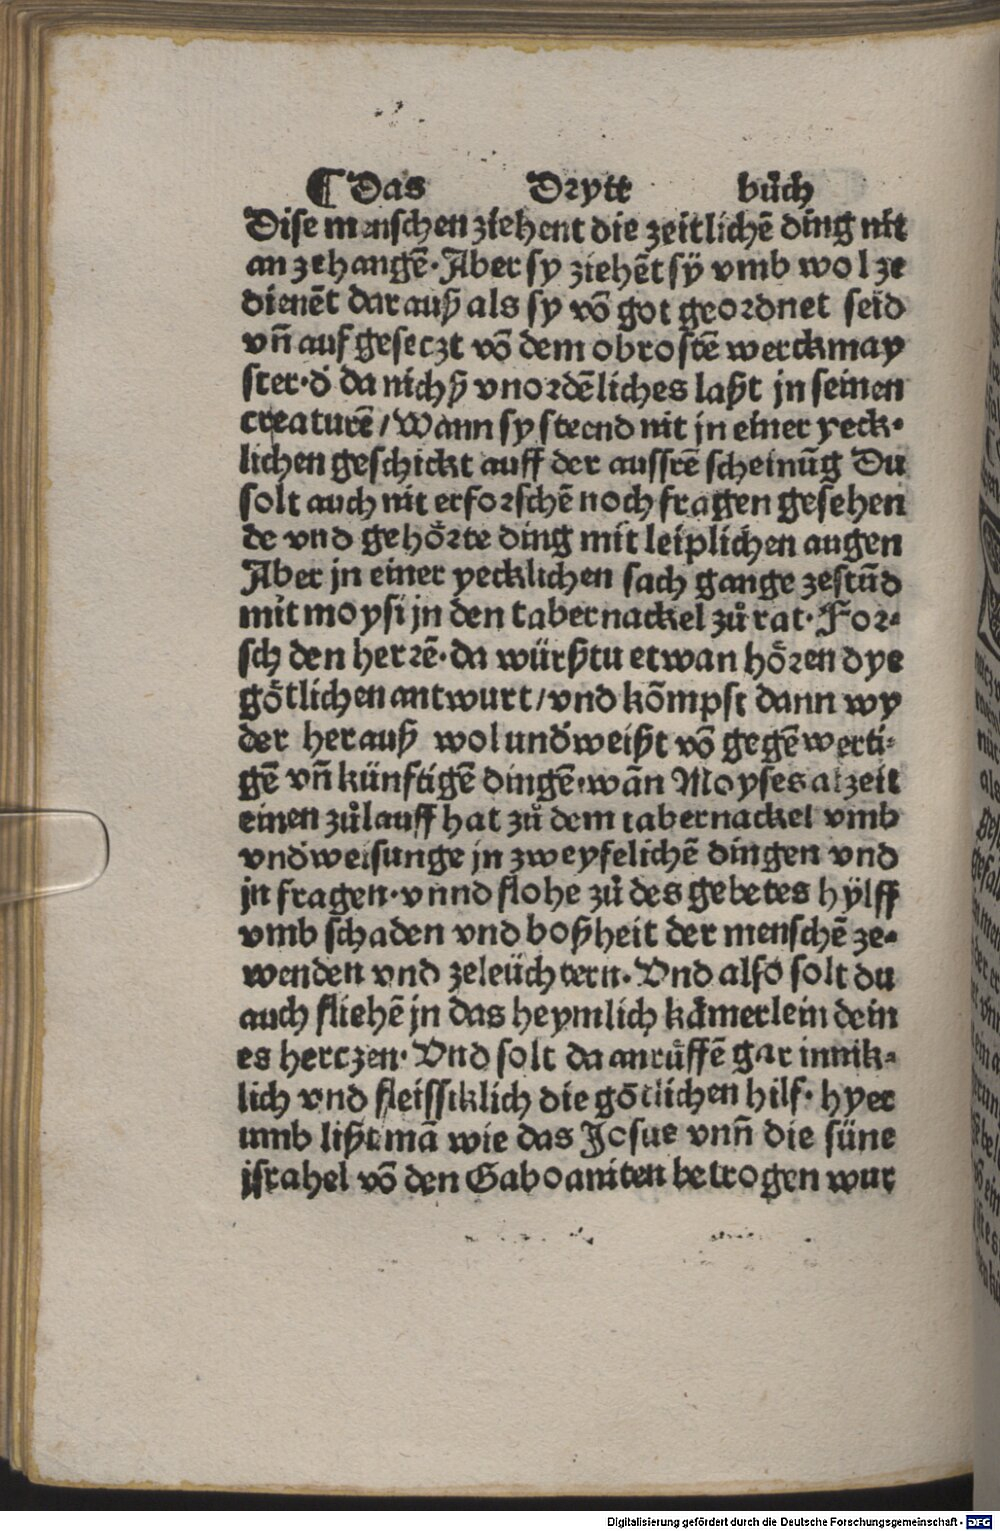 ⸿ Das Drytt bůch
Dise menschen ziehent die zeitlichē ding nit
an ze hangē. Aber sy ziehēt sÿ vmb wol ze
dienēt dar auß als sy vō got geordnet seid
vñ auf gesetzt vō dem obrostē werckmay
ster. d̕ da nichß vnordēliches laßt jn seinen
creaturē / Wann sy steend nit jn einer yeck⸗
lichen geschickt auff der aussrē scheinūg Du
solt auch nit erforschē noch fragen gesehen
de vnd gehörte ding mit leiplichen augen
Aber jn einer yecklichen sach gange zestūd
mit moysi jn den tabernackel zů rat. For⸗
sch den herrē. da würßtu etwan hören dye
götlichen antwurt / vnd kōmpst dann wy
der herauß wol und̕weißt vō gegēwerti⸗
gē vñ künftigē dingē. wān Moyses alzeit
einen zůlauff hat zů dem tabernackel vmb
vnd̕weisunge jn zweyfelichē dingen vnd
jn fragen. vnnd flohe zů des gebetes hÿlff
vmb schaden vnd boßheit der menschē ze⸗
wenden vnd zeleüchtern. Vnd also solt du
auch fliehē jn das heymlich kämerlein dein
es herczen. Vnd solt da anrůffē gar innik⸗
lich vnd fleissiklich die götlichen hilf. hyer
umb lißt mā wie das Josue vnñ die süne
jsrahel vō den Gaboaniten betrogen wur
Digitalisierung gefördert durch die Deutsche Forschungsgemeinschaft - DFG